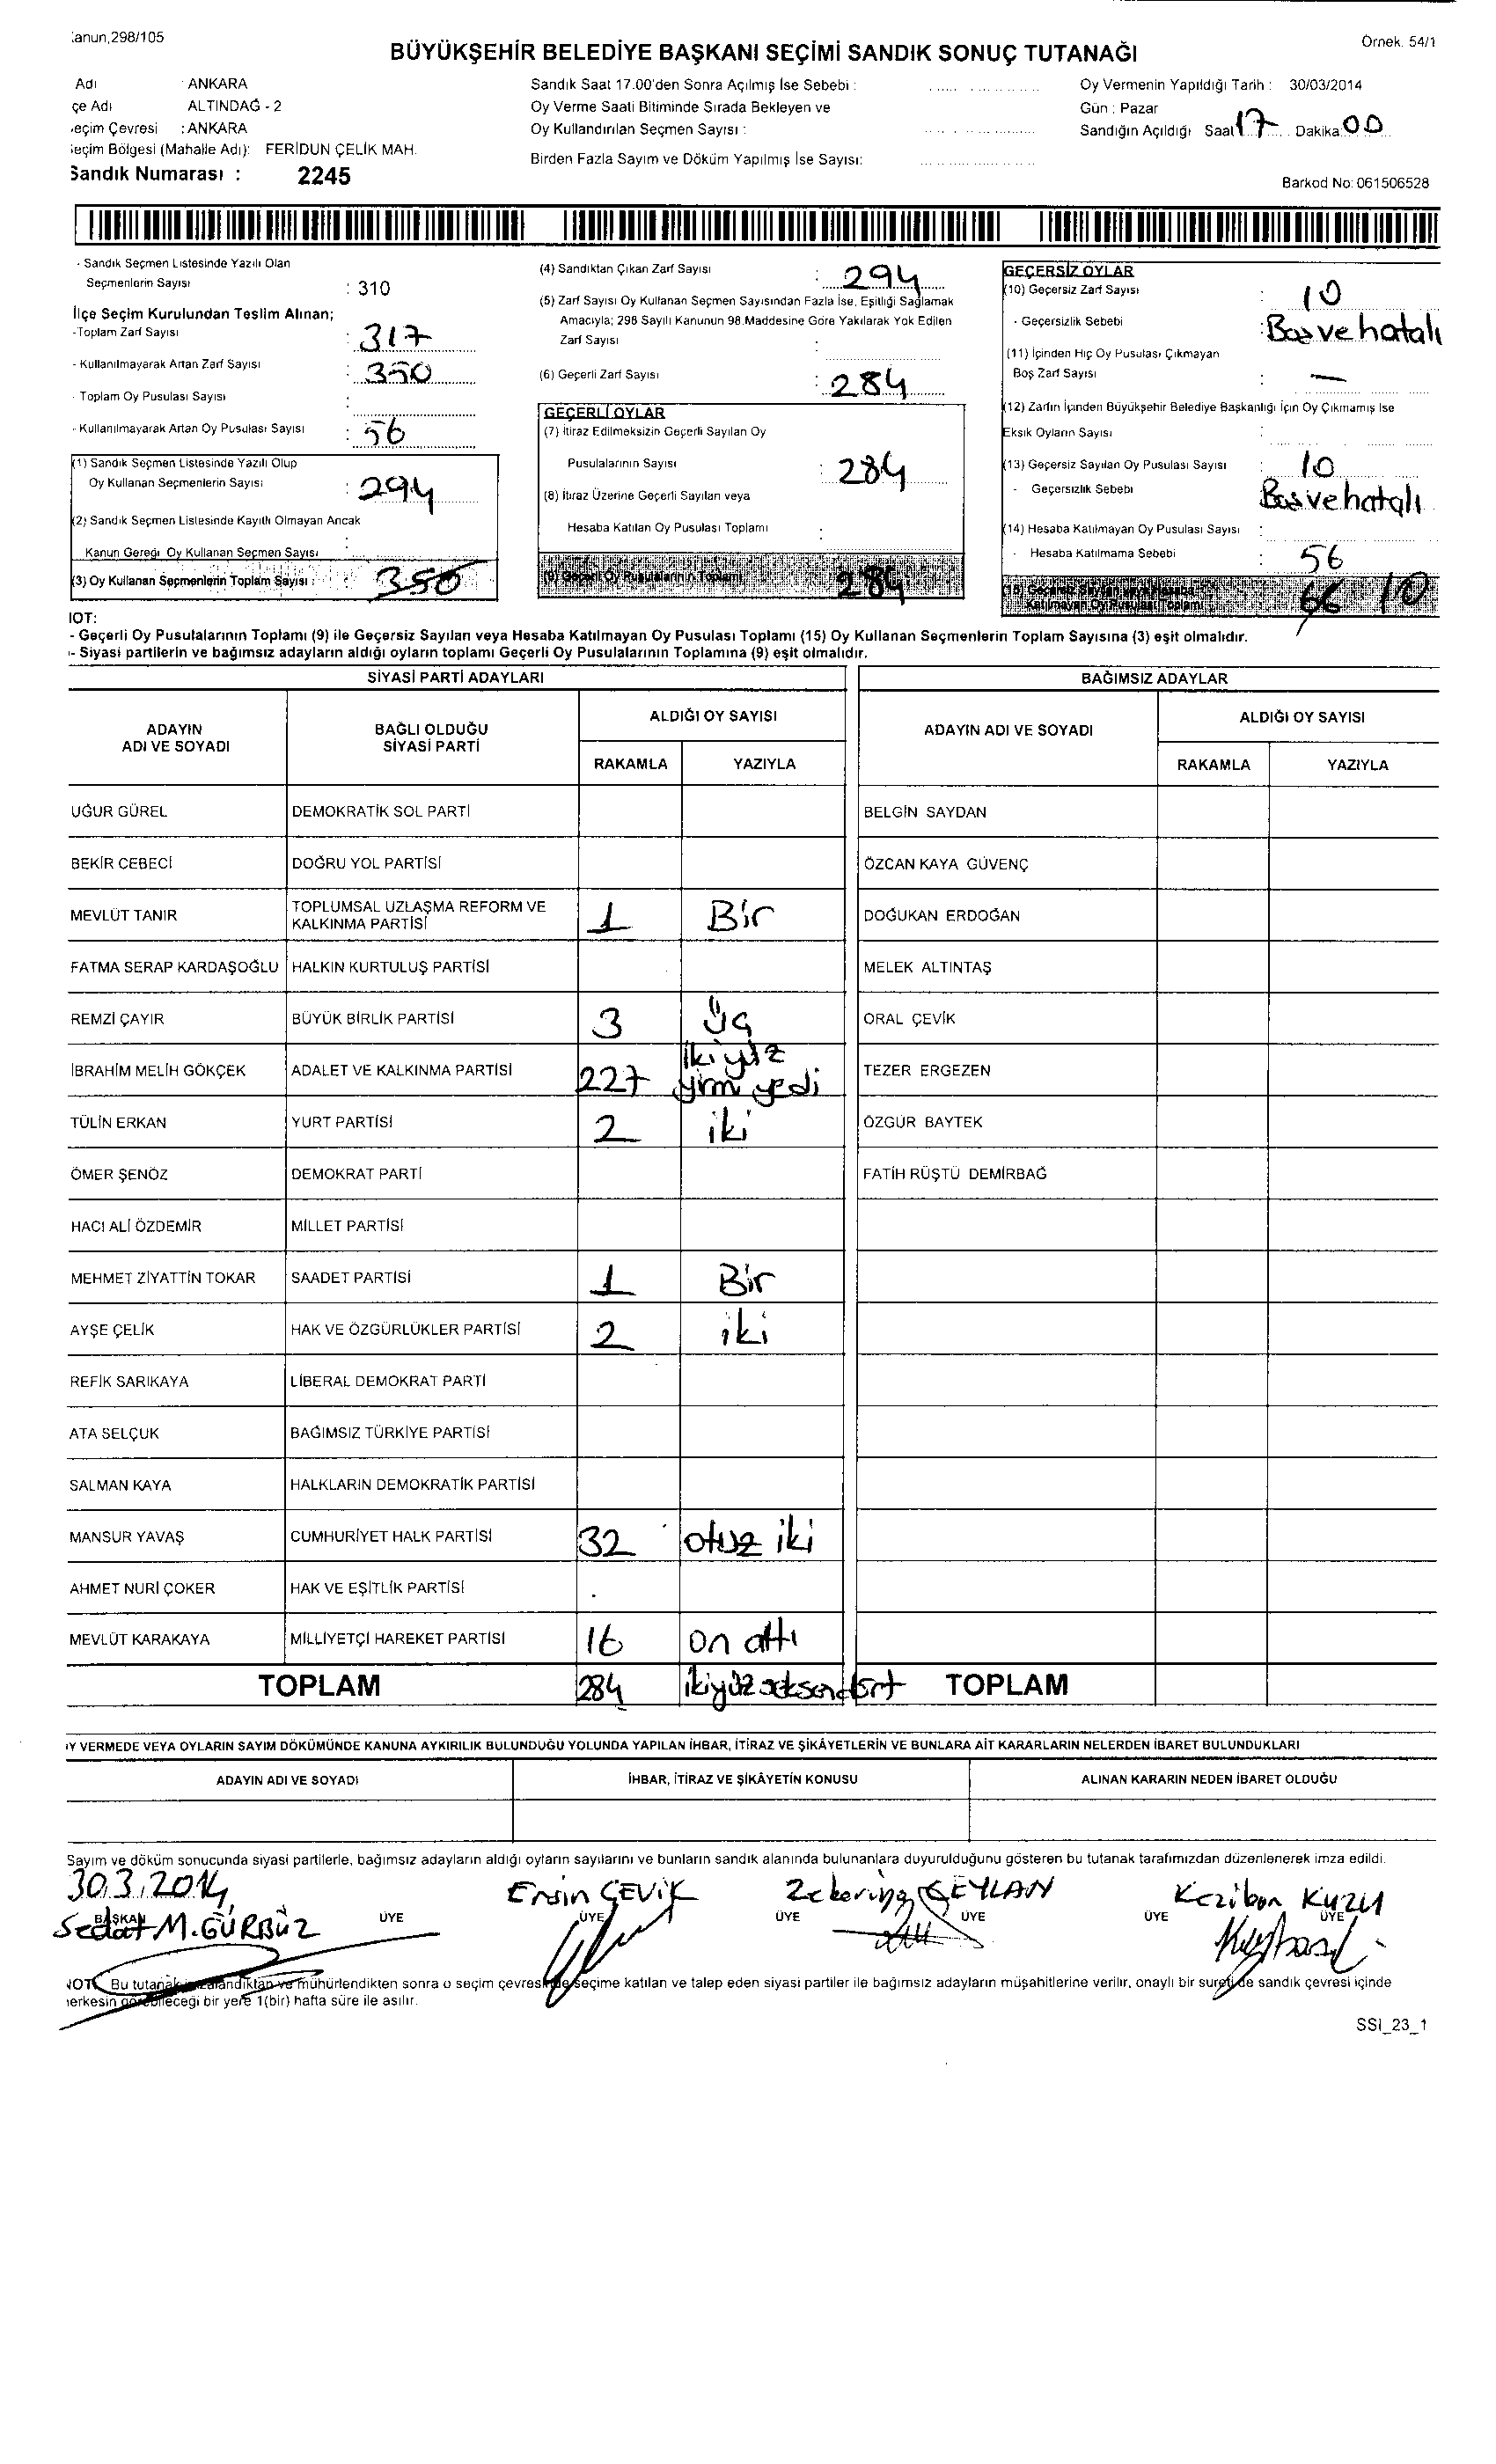 anun,298/105
Örnek. 54/1
BÜYÜKŞEHİR BELEDİYE BAŞKANI SEÇİMİ SANDIK SONUÇ TUTANAĞI
Adı : ANKARA
çe Adı ALTINDAĞ - 2
eçim Çevresi : ANKARA
eçim Bölgesi (Mahalle Adı): FERİDUN ÇELİK MAH.
Sandık Numarası : 2245
Sandık Saat 17.00'den Sonra Açılmış İse Sebebi :
Oy Verme Saati Bitiminde Sırada Bekleyen ve
Oy Kullandırılan Seçmen Sayısı :
Birden Fazla Sayım ve Döküm Yapılmış İse Sayısı:
Oy Vermenin Yapıldığı Tarih : 30/03/2014
Gün : Pazar
Sandığın Açıldığı Saat 17 Dakika: 00
Barkod No: 061506528
- Sandık Seçmen Listesinde Yazılı Olan
Seçmenlerin Sayısı : 310
İlçe Seçim Kurulundan Teslim Alınan;
-Toplam Zarf Sayısı : 317
- Kullanılmayarak Artan Zarf Sayısı : 350
- Toplam Oy Pusulası Sayısı :
- Kullanılmayarak Artan Oy Pusulası Sayısı : 56
(1) Sandık Seçmen Listesinde Yazılı Olup
Oy Kullanan Seçmenlerin Sayısı : 294
(2) Sandık Seçmen Listesinde Kayıtlı Olmayan Ancak
Kanun Gereği Oy Kullanan Seçmen Sayısı :
(3) Oy Kullanan Seçmenlerin Toplam Sayısı : 350
(4) Sandıktan Çıkan Zarf Sayısı : 294
(5) Zarf Sayısı Oy Kullanan Seçmen Sayısından Fazla İse, Eşitliği Sağlamak
Amacıyla; 298 Sayılı Kanunun 98.Maddesine Göre Yakılarak Yok Edilen
Zarf Sayısı :
(6) Geçerli Zarf Sayısı : 284
GEÇERLİ OYLAR
(7) İtiraz Edilmeksizin Geçerli Sayılan Oy
Pusulalarının Sayısı : 284
(8) İtiraz Üzerine Geçerli Sayılan veya
Hesaba Katılan Oy Pusulası Toplamı :
(9) Geçerli Oy Pusulalarının Toplamı 284
GEÇERSİZ OYLAR
(10) Geçersiz Zarf Sayısı : 10
- Geçersizlik Sebebi : Bos ve hatalı
(11) İçinden Hiç Oy Pusulası Çıkmayan
Boş Zarf Sayısı : —
(12) Zarfın İçinden Büyükşehir Belediye Başkanlığı İçin Oy Çıkmamış İse
Eksik Oyların Sayısı :
(13) Geçersiz Sayılan Oy Pusulası Sayısı : 10
- Geçersizlik Sebebi : Bos ve hatalı
(14) Hesaba Katılmayan Oy Pusulası Sayısı :
- Hesaba Katılmama Sebebi : 56
(15) Geçersiz Sayılan veya Hesaba
Katılmayan Oy Pusulası Toplamı 66 10
NOT:
- Geçerli Oy Pusulalarının Toplamı (9) ile Geçersiz Sayılan veya Hesaba Katılmayan Oy Pusulası Toplamı (15) Oy Kullanan Seçmenlerin Toplam Sayısına (3) eşit olmalıdır.
- Siyasi partilerin ve bağımsız adayların aldığı oyların toplamı Geçerli Oy Pusulalarının Toplamına (9) eşit olmalıdır.
SİYASİ PARTİ ADAYLARI
BAĞIMSIZ ADAYLAR
ADAYIN ADI VE SOYADI
BAĞLI OLDUĞU SİYASİ PARTİ
ALDIĞI OY SAYISI
RAKAMLA YAZIYLA
ADAYIN ADI VE SOYADI
ALDIĞI OY SAYISI
RAKAMLA YAZIYLA
UĞUR GÜREL DEMOKRATİK SOL PARTİ BELGİN SAYDAN
BEKİR CEBECİ DOĞRU YOL PARTİSİ ÖZCAN KAYA GÜVENÇ
MEVLÜT TANIR TOPLUMSAL UZLAŞMA REFORM VE KALKINMA PARTİSİ 1 Bir DOĞUKAN ERDOĞAN
FATMA SERAP KARDAŞOĞLU HALKIN KURTULUŞ PARTİSİ MELEK ALTINTAŞ
REMZİ ÇAYIR BÜYÜK BİRLİK PARTİSİ 3 Üç ORAL ÇEVİK
İBRAHİM MELİH GÖKÇEK ADALET VE KALKINMA PARTİSİ 227 ikiyüz yirmi yedi TEZER ERGEZEN
TÜLİN ERKAN YURT PARTİSİ 2 iki ÖZGÜR BAYTEK
ÖMER ŞENÖZ DEMOKRAT PARTİ FATİH RÜŞTÜ DEMİRBAĞ
HACI ALİ ÖZDEMİR MİLLET PARTİSİ
MEHMET ZİYATTİN TOKAR SAADET PARTİSİ 1 Bir
AYŞE ÇELİK HAK VE ÖZGÜRLÜKLER PARTİSİ 2 iki
REFİK SARIKAYA LİBERAL DEMOKRAT PARTİ
ATA SELÇUK BAĞIMSIZ TÜRKİYE PARTİSİ
SALMAN KAYA HALKLARIN DEMOKRATİK PARTİSİ
MANSUR YAVAŞ CUMHURİYET HALK PARTİSİ 32 otuz iki
AHMET NURİ ÇOKER HAK VE EŞİTLİK PARTİSİ
MEVLÜT KARAKAYA MİLLİYETÇİ HAREKET PARTİSİ 16 on altı
TOPLAM 284 ikiyüz seksendört TOPLAM
Y VERMEDE VEYA OYLARIN SAYIM DÖKÜMÜNDE KANUNA AYKIRILIK BULUNDUĞU YOLUNDA YAPILAN İHBAR, İTİRAZ VE ŞİKÂYETLERİN VE BUNLARA AİT KARARLARIN NELERDEN İBARET BULUNDUKLARI
ADAYIN ADI VE SOYADI İHBAR, İTİRAZ VE ŞİKÂYETİN KONUSU ALINAN KARARIN NEDEN İBARET OLDUĞU
Sayım ve döküm sonucunda siyasi partilerle, bağımsız adayların aldığı oyların sayılarını ve bunların sandık alanında bulunanlara duyurulduğunu gösteren bu tutanak tarafımızdan düzenlenerek imza edildi.
30.3.2014 Ersin ÇEVİK Zekeriya CEYLAN Keziban KUZU
BAŞKAN ÜYE ÜYE ÜYE ÜYE ÜYE ÜYE
Sedat M. GÜRBÜZ
NOT: Bu tutanak imzalandıktan ve mühürlendikten sonra o seçim çevresinde seçime katılan ve talep eden siyasi partiler ile bağımsız adayların müşahitlerine verilir, onaylı bir sureti de sandık çevresi içinde
herkesin görebileceği bir yere 1(bir) hafta süre ile asılır.
SSI_23_1